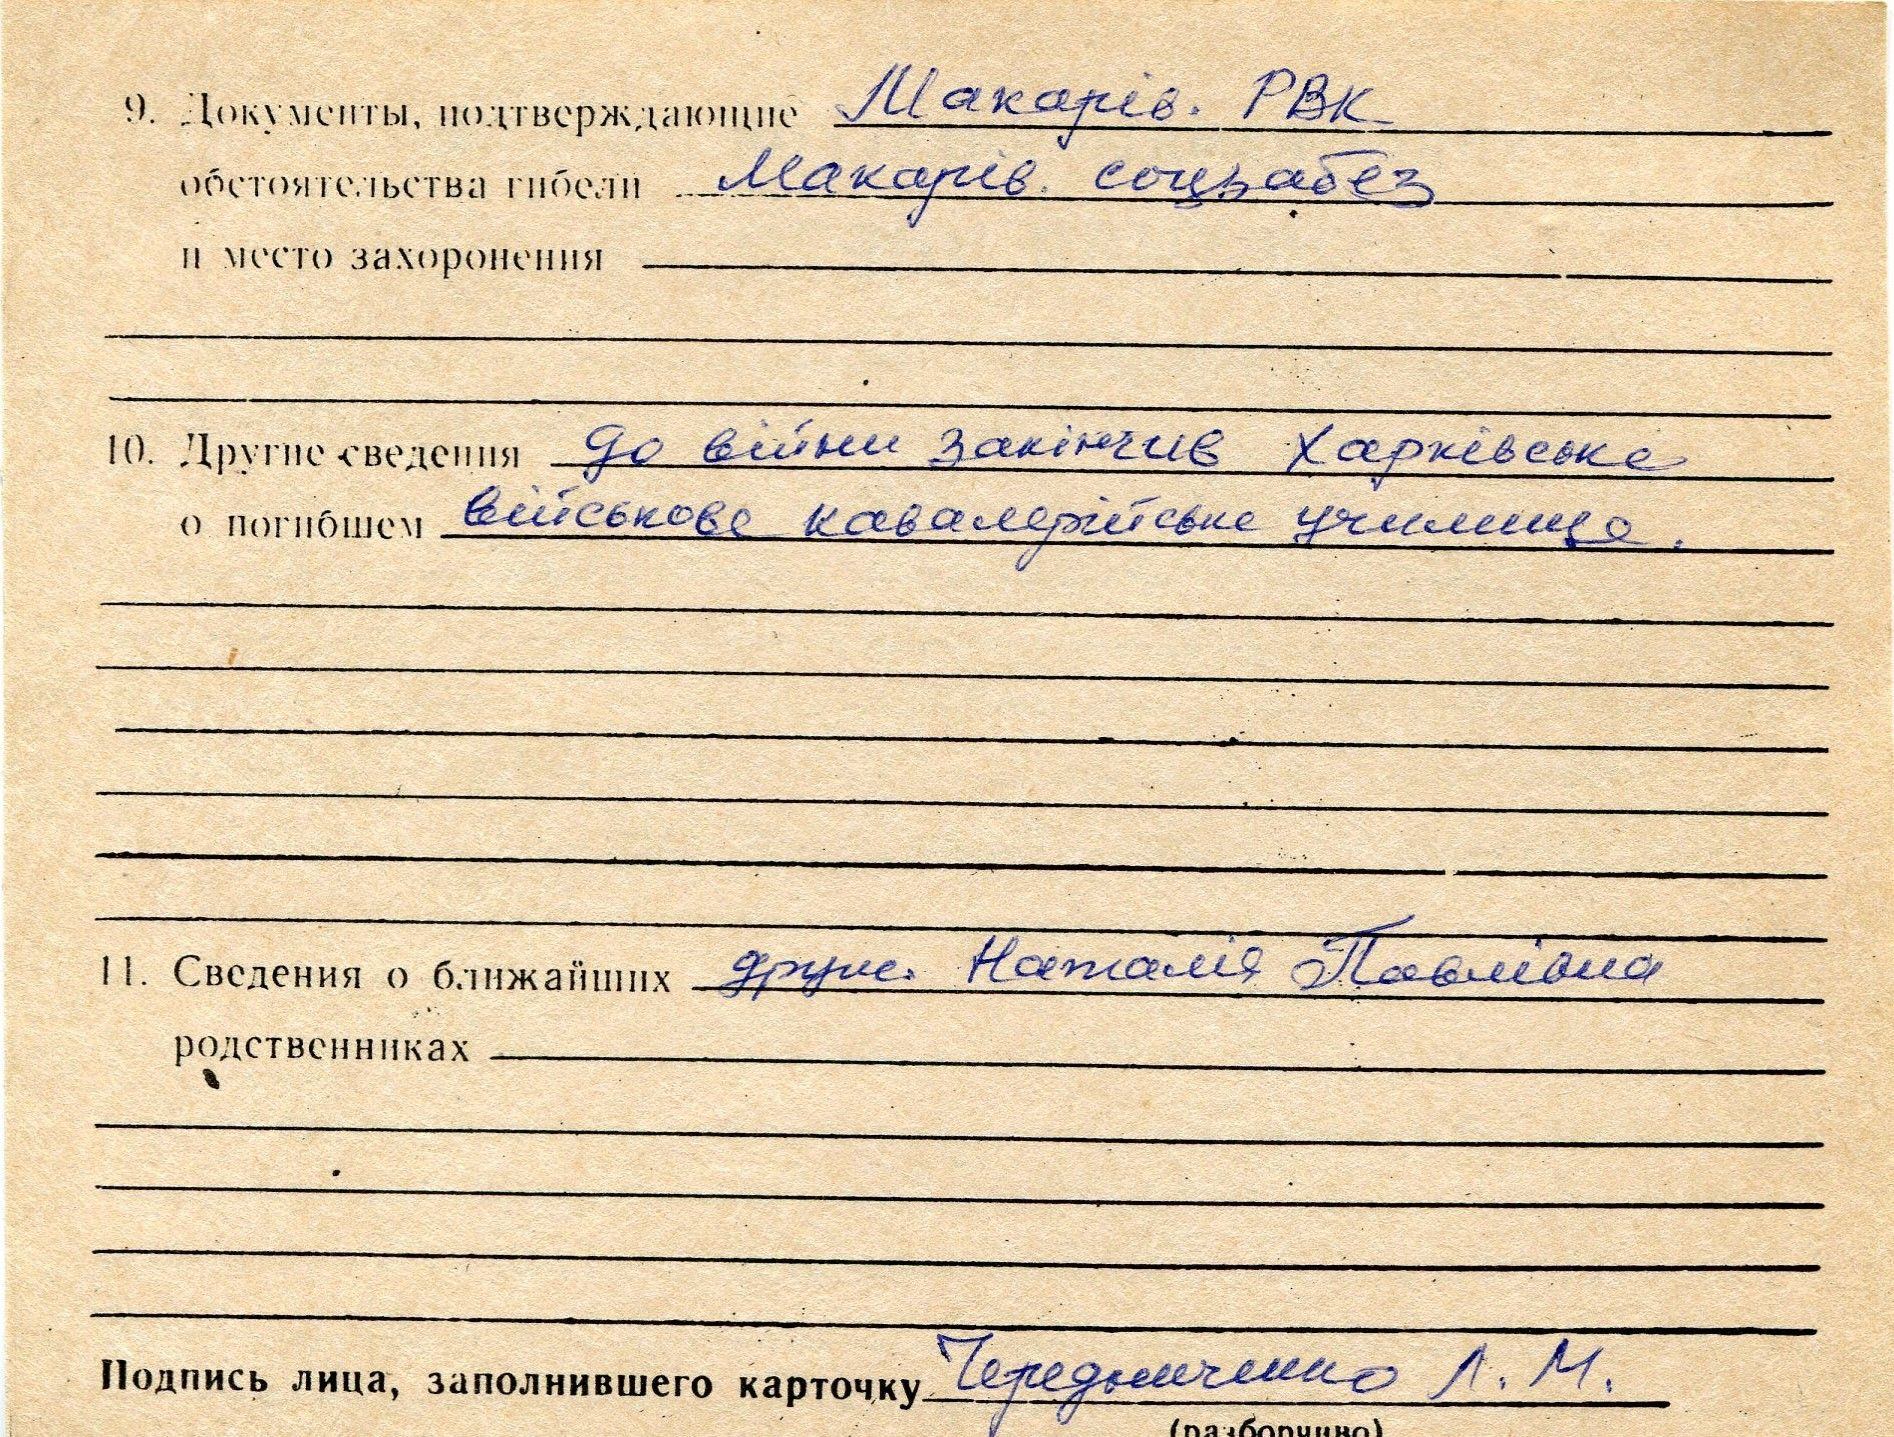 9. Документы, подтверждающие Макарів. РВК
обстоятельства гибели Макарів. соцзабез
и место захоронения
10. Другие сведения до війни закінчив Харківське
о погибшем військове кавалерійське училище.
11. Сведения о ближайших друж. Наталія Павлівна
родственниках
Подпись лица, заполнившего карточку Чередниченко Л. М.
(разборчиво)